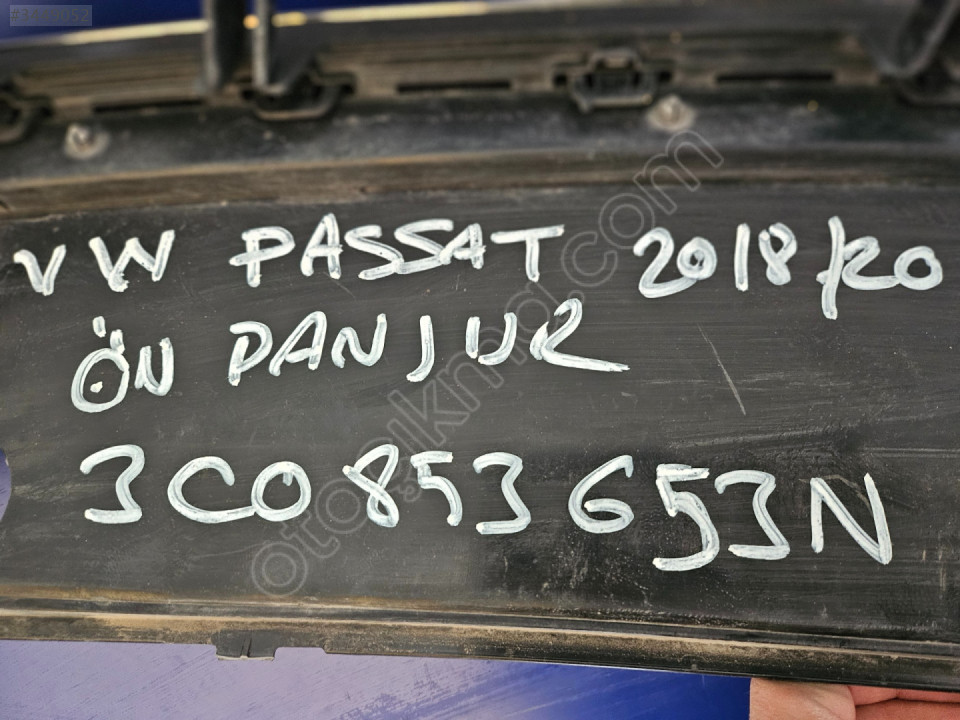 VW PASSAT 2018/20
ÖN PANJUR
3C0853653N
otogolkmo.com